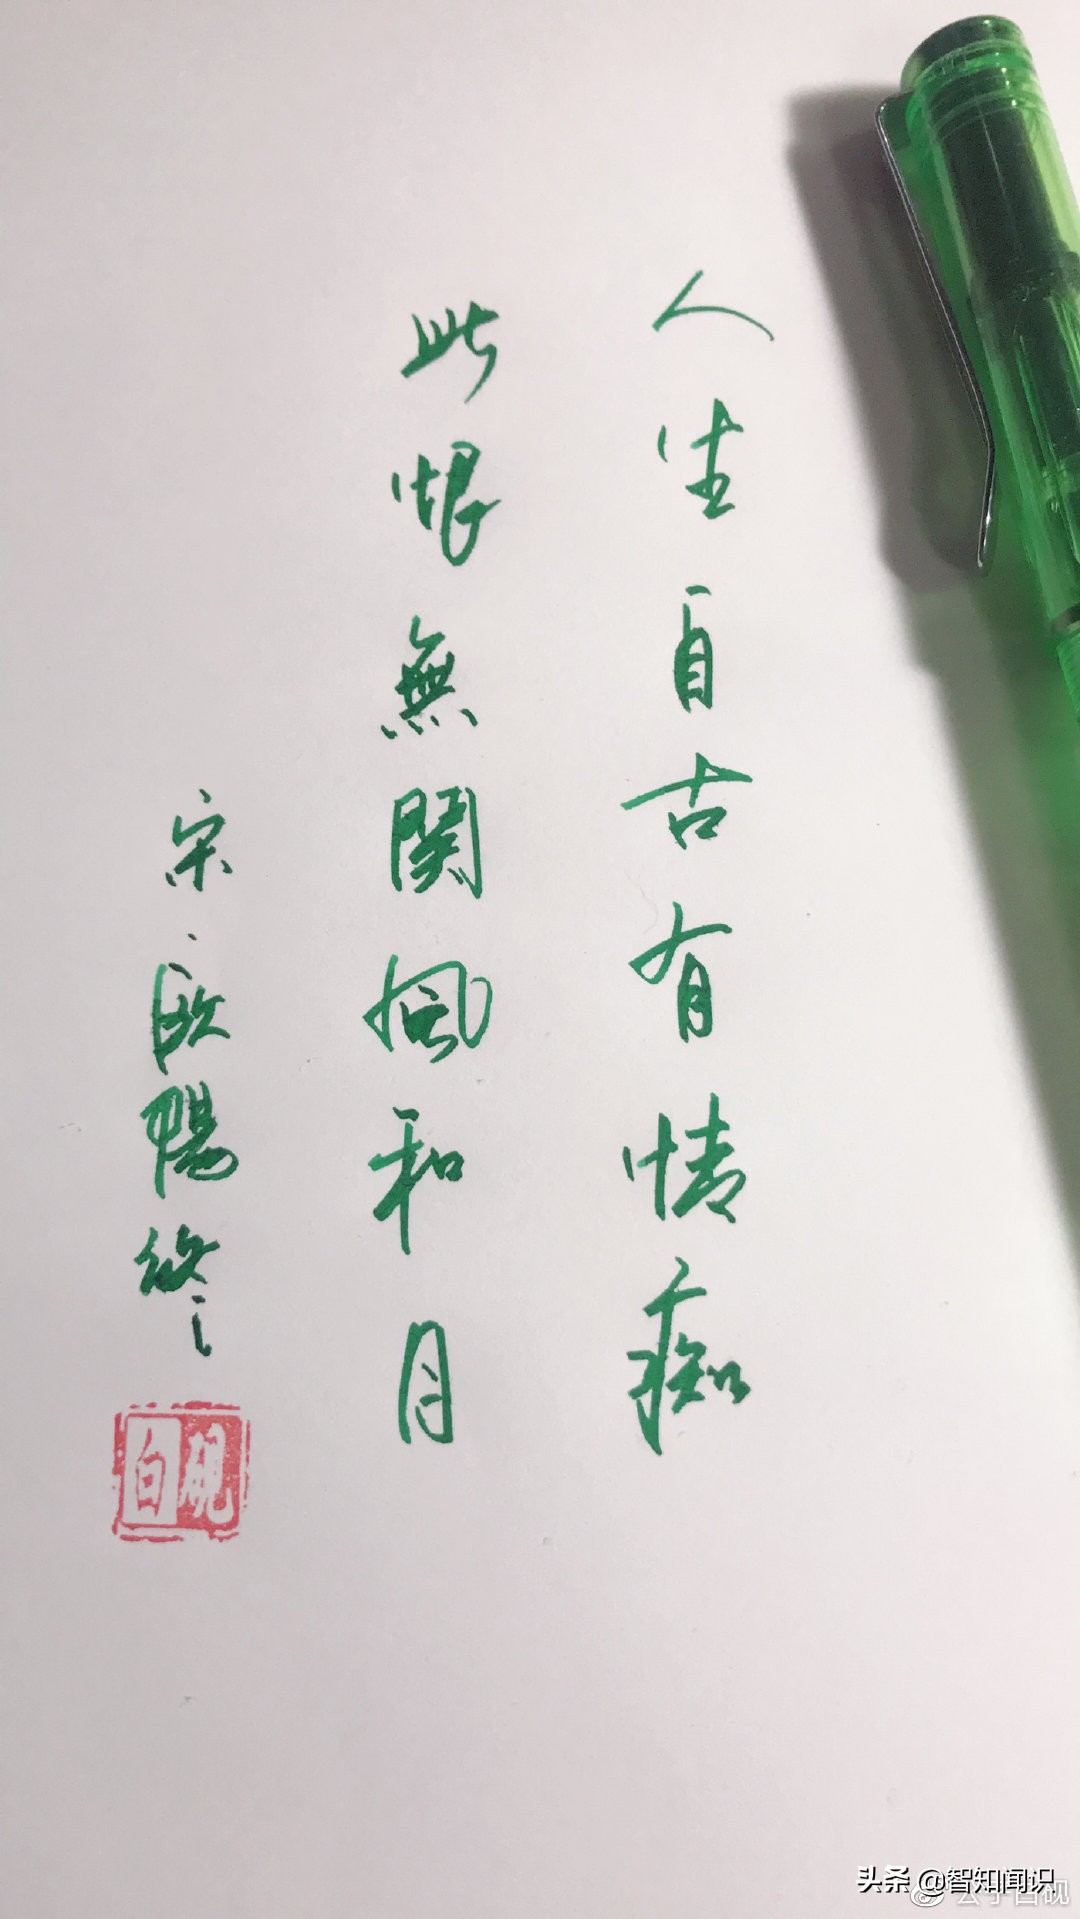 人生自古有情痴
此恨無関風和月
宋·欧陽修
白硯
头条 @智知闻识